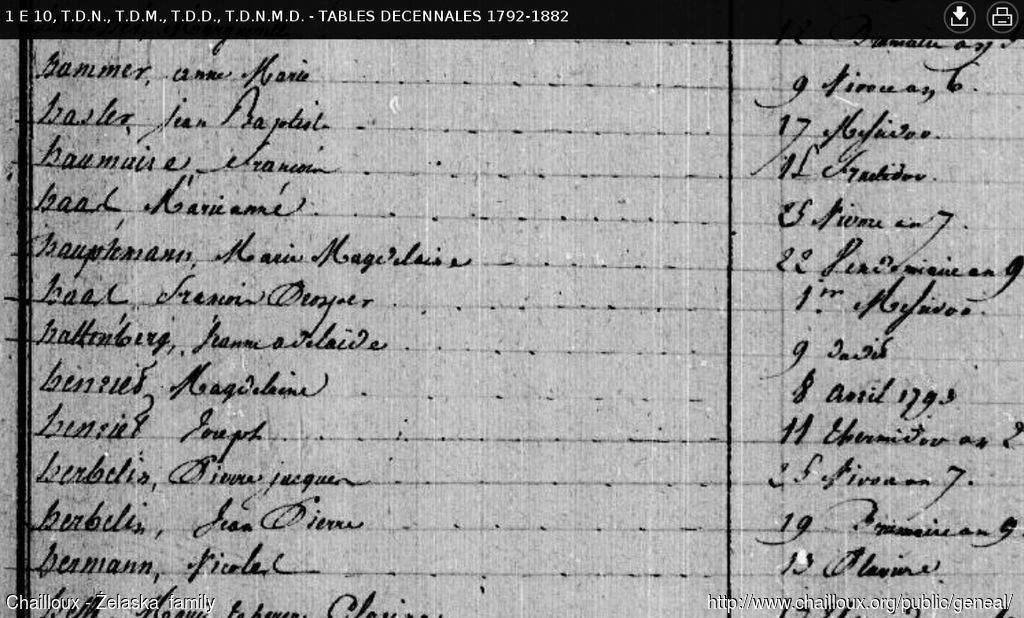 1 E 10, T.D.N., T.D.M., T.D.D., T.D.N.M.D. - TABLES DECENNALES 1792-1882
hammer, anne Marie 9 Nivose an 6.
hasler, jean Baptist 17 Messidor.
haumaise francois 15 fructidor.
haas Marianne 25 Nivose an 7.
hauptemann, Marie Magdelaine 22 Vendemiaire an 9
haas francois Prosper 1er Messidor.
hattenberg, Jeanne adelaide 9 dudit
henriet Magdelaine 8 avril 1793
henriet Joseph 11 thermidor an 2
herbelin, Pierre jacques 25 Nivose an 7.
herbelin, Jean Pierre 19 Brumaire an 9.
hermann, Nicolas 13 Pluviose.
Chailloux - Żelaska family
http://www.chailloux.org/public/geneal/